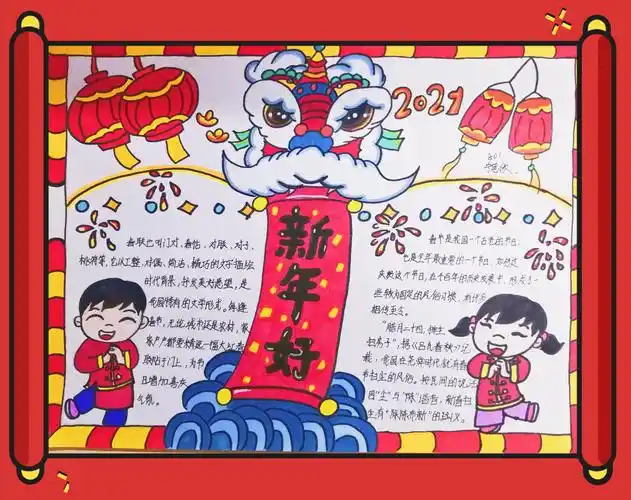 2021
801
新年好
春联也叫门对、春贴、对联、对子、
桃符等,它以工整、对偶、简洁、精巧的文字描绘
时代背景,抒发美好愿望,是
我国特有的文学形式。每逢
春节,无论城市还是农村,家
家户户都要精选一幅大红春
联贴于门上,为节
日增加喜庆
气氛。
春节是我国一个古老的节日,
也是全年最重要的一个节日,如何过
庆贺这个节日,在千百年的历史发展中,形成了一
些较为固定的风俗习惯,有许多
相传至今。
“腊月二十四,掸尘
扫房子”,据《吕氏春秋》记
载,我国在尧舜时代就有春
节扫尘的风俗。按民间的说法
因“尘”与“陈”谐音,新春扫
尘有“除陈布新”的涵义。